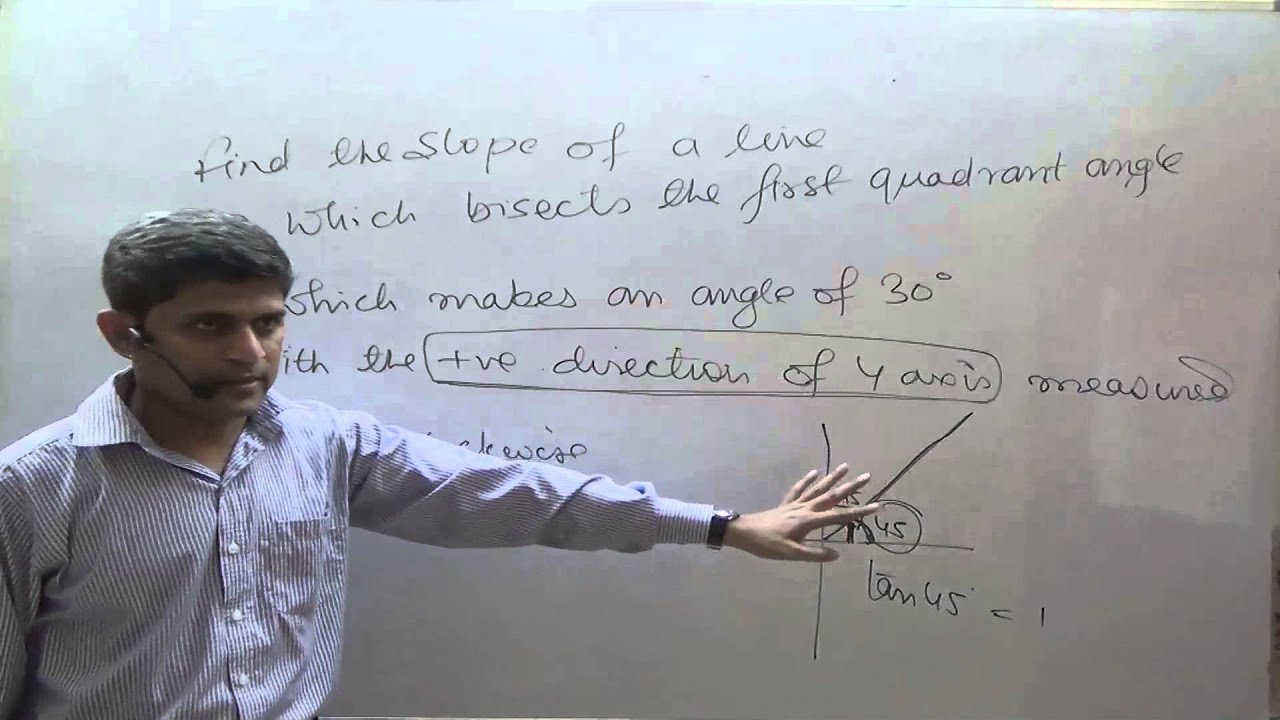 find the slope of a line
which bisects the first quadrant angle
which makes an angle of 30°
the +ve direction of Y axis measured
45
tan 45° = 1